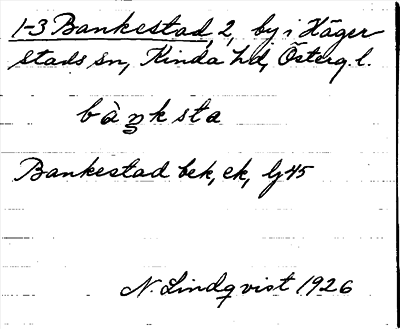 1-3 Bankestad, 2, by i Häger-
stads sn, Kinda hd, Österg. l.
bàŋksta
Bankestad bek, ek, lj 45
N. Lindqvist 1926